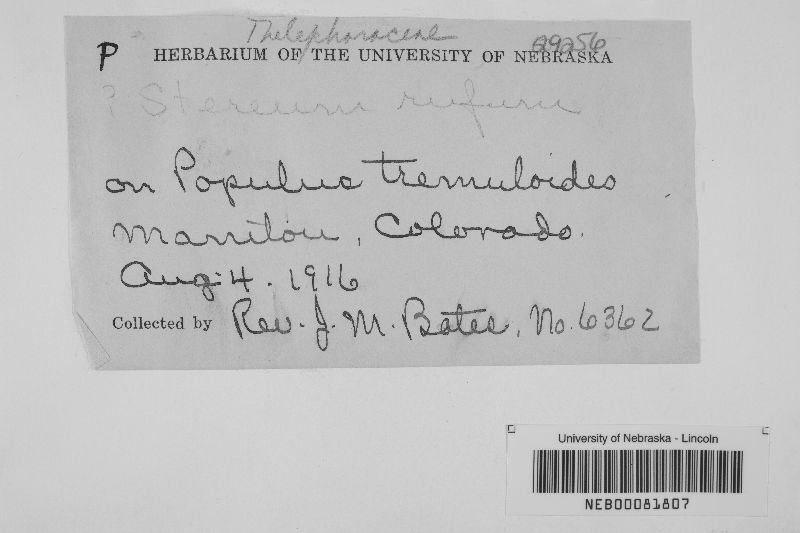 Thelephoraceae
29256
P HERBARIUM OF THE UNIVERSITY OF NEBRASKA
? Stereum rufum
on Populus tremuloides
Manitou, Colorado.
Aug. 4. 1916
Collected by Rev. J. M. Bates, No. 6362
University of Nebraska - Lincoln
NEB00081807